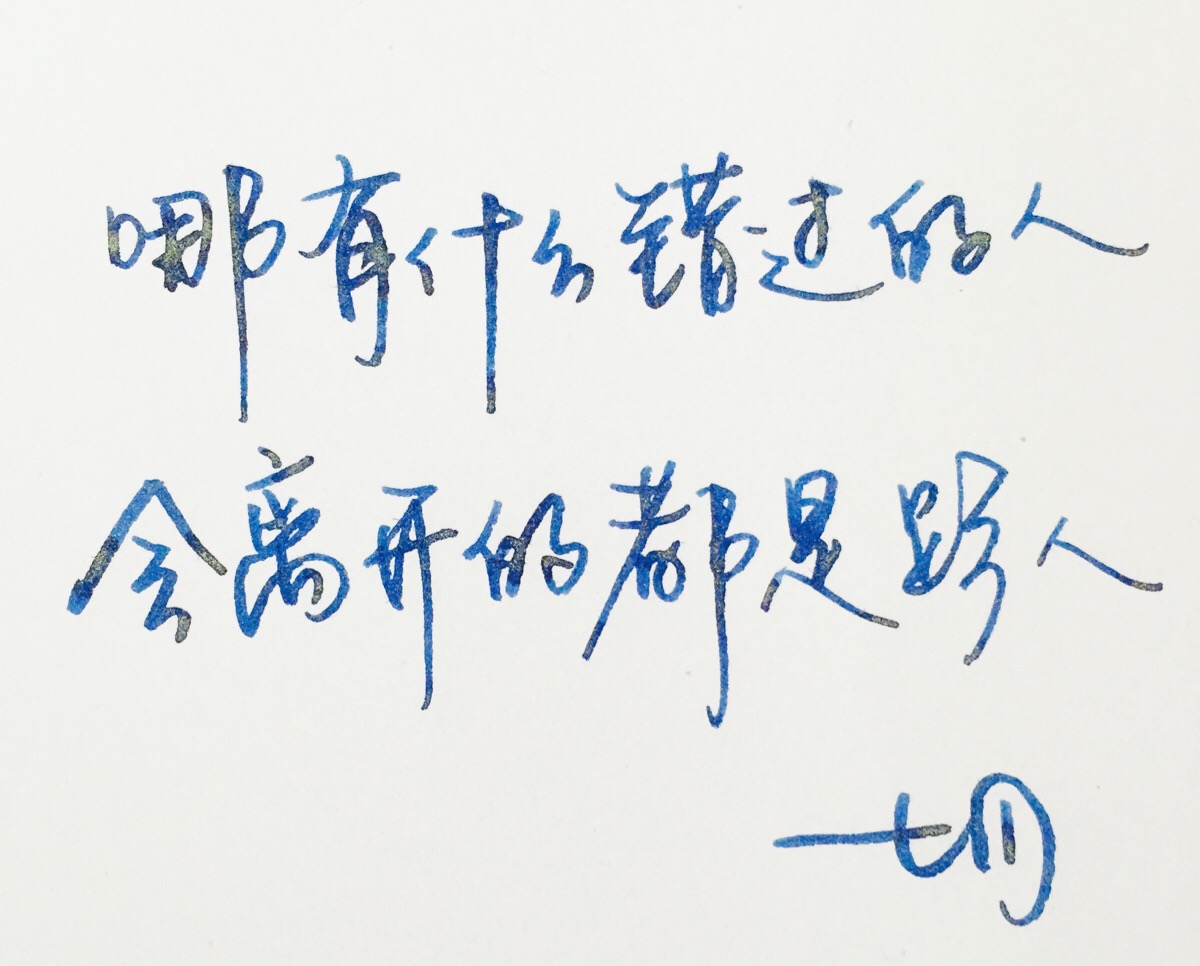 哪有什么错过的人
会离开的都是路人
七月